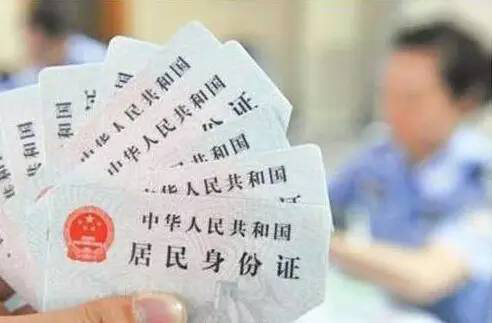 中华人民共和国
居民身份证
中华人民共和国
中华人民共和国
份证
中华人民共和国